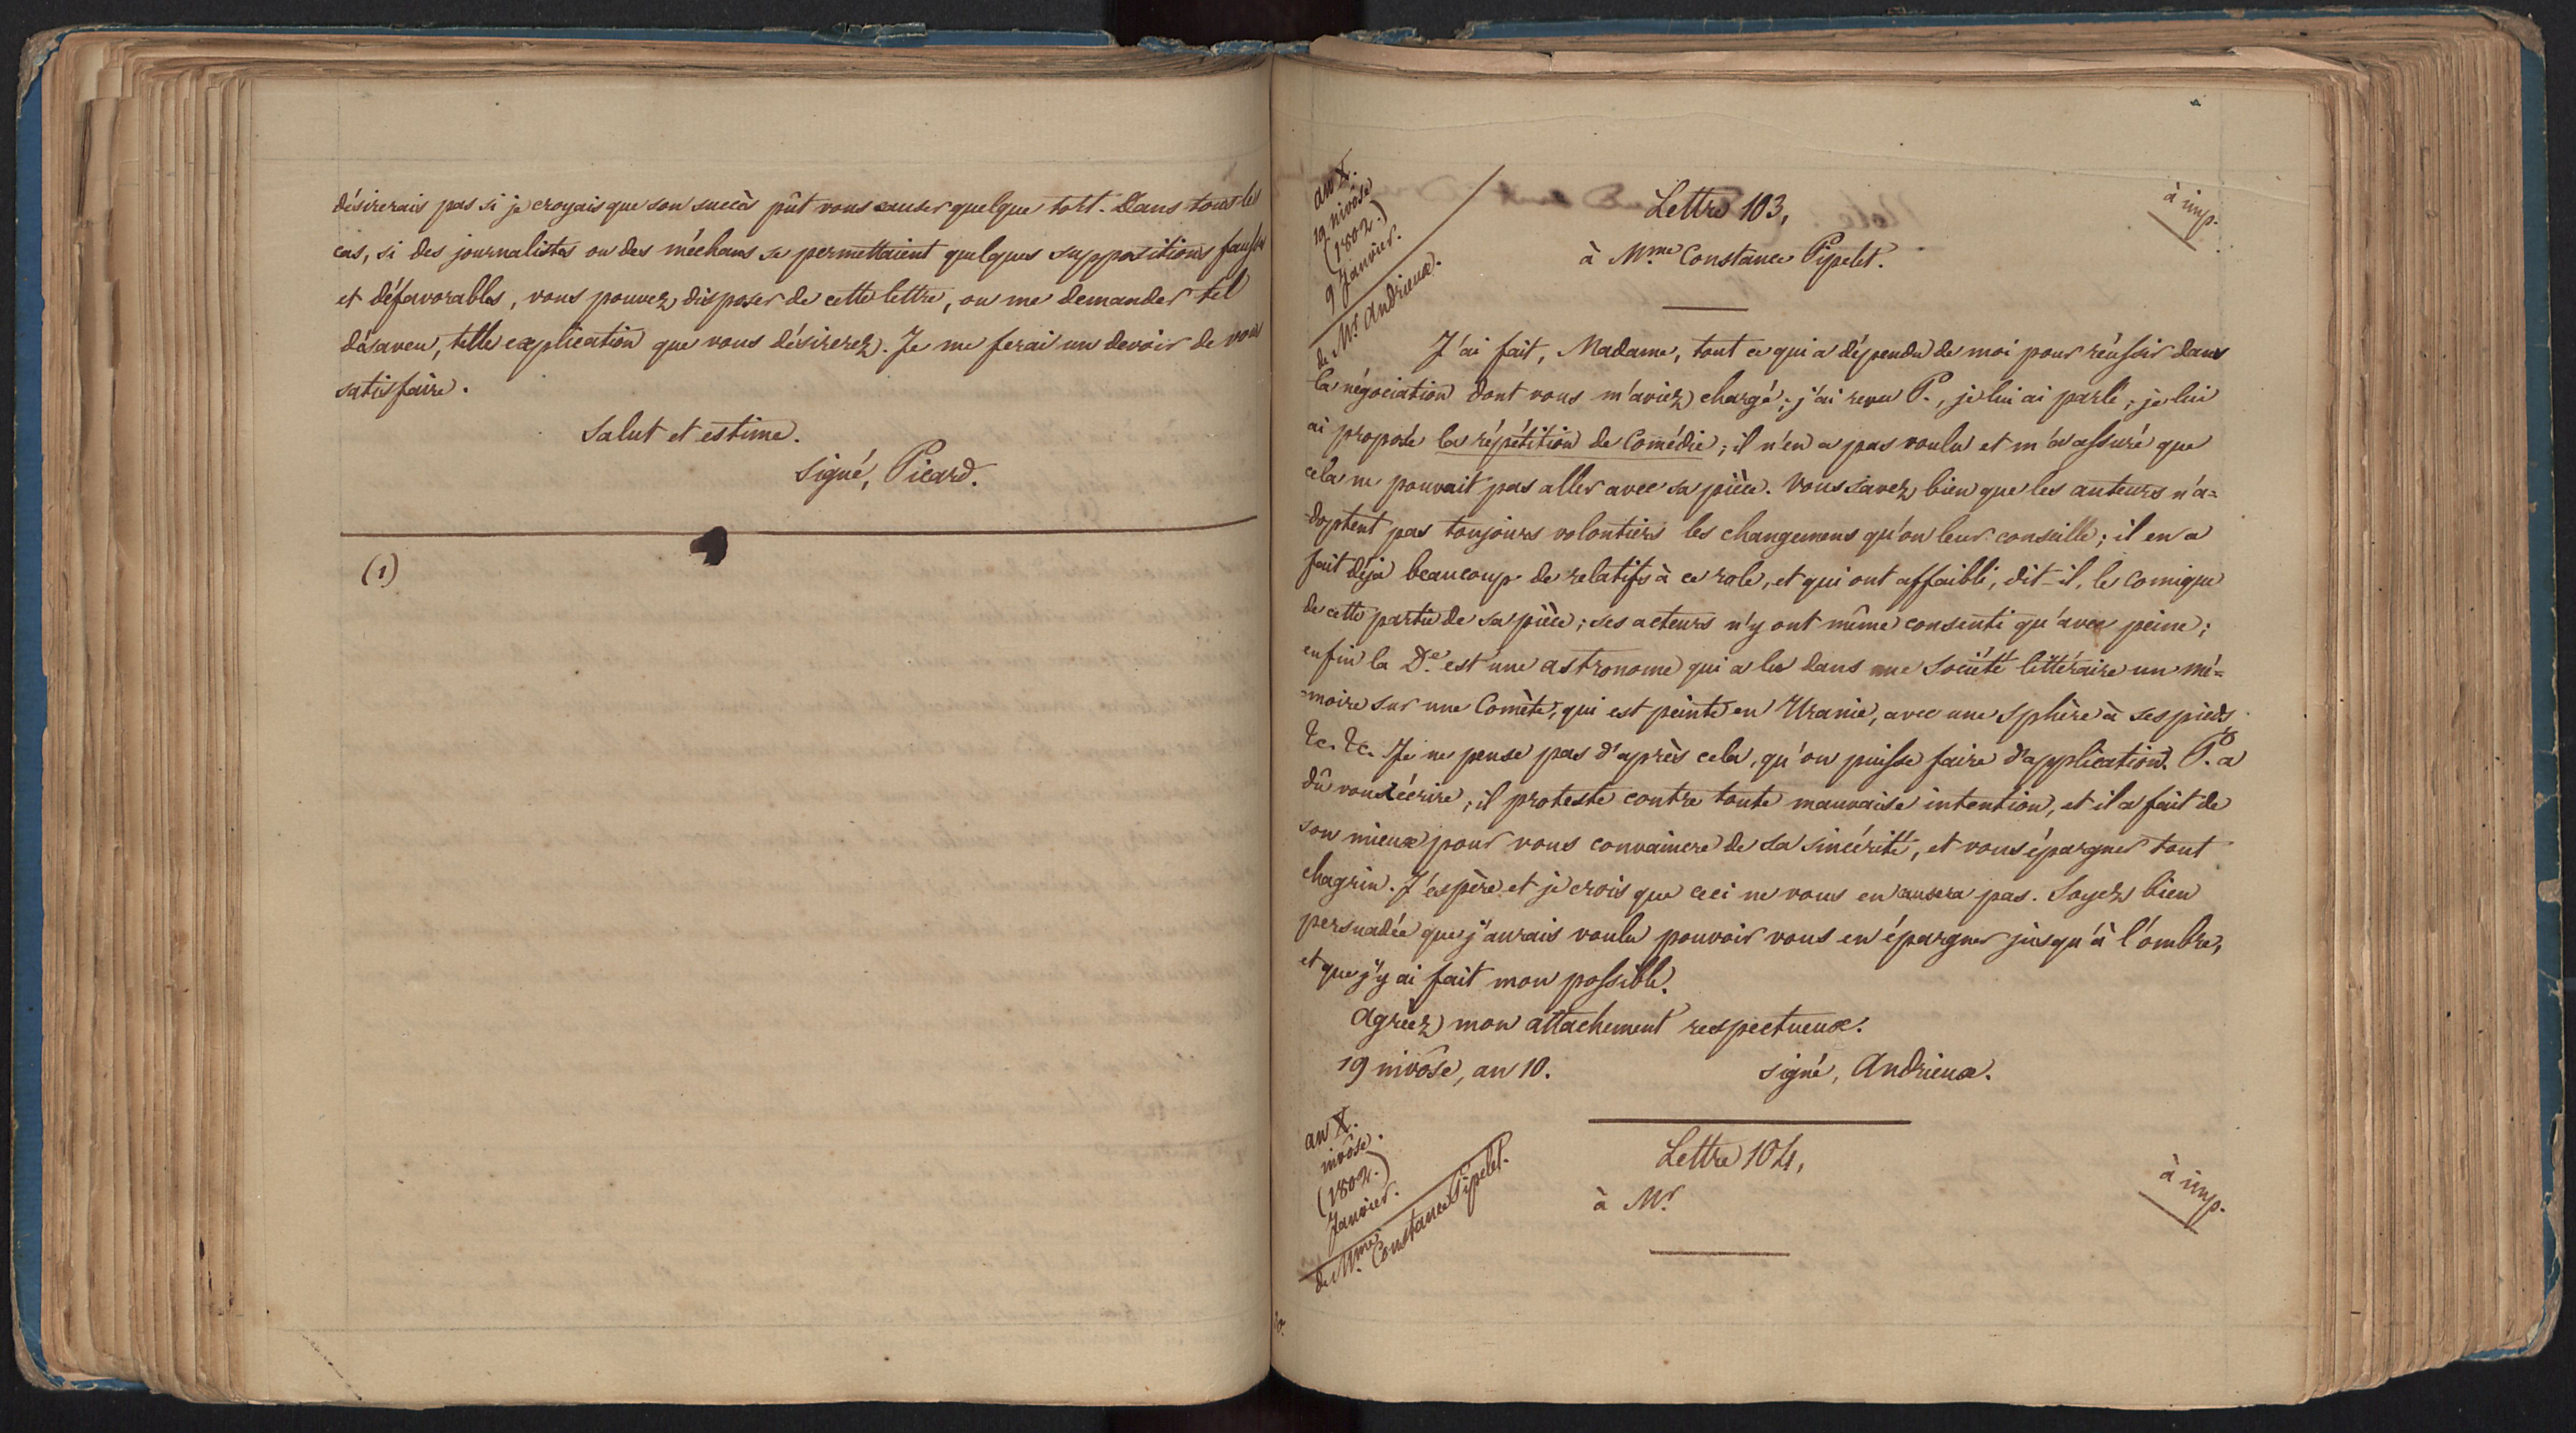 désirerais pas si je croyais que son succès pût vous causer quelque tort. Dans tous les
cas, si des journalistes ou des méchans se permettaient quelques suppositions fausses
et défavorables, vous pouvez disposer de cette lettre, ou me demander tel
désaveu, telle explication que vous désirerez. Je me ferai un devoir de vous
satisfaire.
Salut et estime.
Signé, Picard.
(1)
an X.
19 nivôse
(1802.)
9 Janvier.
de Mr. Andrieux.
Lettre 103,
à Mme Constance Pipelet.
à imp.
J'ai fait, Madame, tout ce qui a dépendu de moi pour réussir dans
la négociation dont vous m'aviez chargé; j'ai revu P., je lui ai parlé; je lui
ai proposé la répétition de Comédie; il n'en a pas voulu et m'a assuré que
cela ne pouvait pas aller avec sa pièce. Vous savez bien que les auteurs n'a=
=doptent pas toujours volontiers les changemens qu'on leur conseille; il en a
fait déja beaucoup de relatifs à ce role, et qui ont affaibli, dit-il, le comique
de cette partie de sa pièce; ses acteurs n'y ont même consenti qu'avec peine;
enfin la De. est une astronome qui a lu dans une Société littéraire un mé=
=moire sur une Comète, qui est peinte en Uranie, avec une Sphère à ses pieds
&c. &c. Je ne pense pas d'après cela, qu'on puisse faire d'application. P. a
dû vous écrire, il proteste contre toute mauvaise intention, et il a fait de
son mieux pour vous convaincre de sa sincérité, et vous épargner tout
chagrin. J'espère et je crois que ceci ne vous en causera pas. Soyez bien
persuadée que j'aurais voulu pouvoir vous en épargner jusqu'à l'ombre,
et que j'y ai fait mon possible.
Agréez mon attachement respectueux.
19 nivôse, an 10.
signé, Andrieux.
an X.
nivôse.
(1802.)
Janvier.
de Mme. Constance Pipelet.
Lettre 104,
à Mr.
à imp.